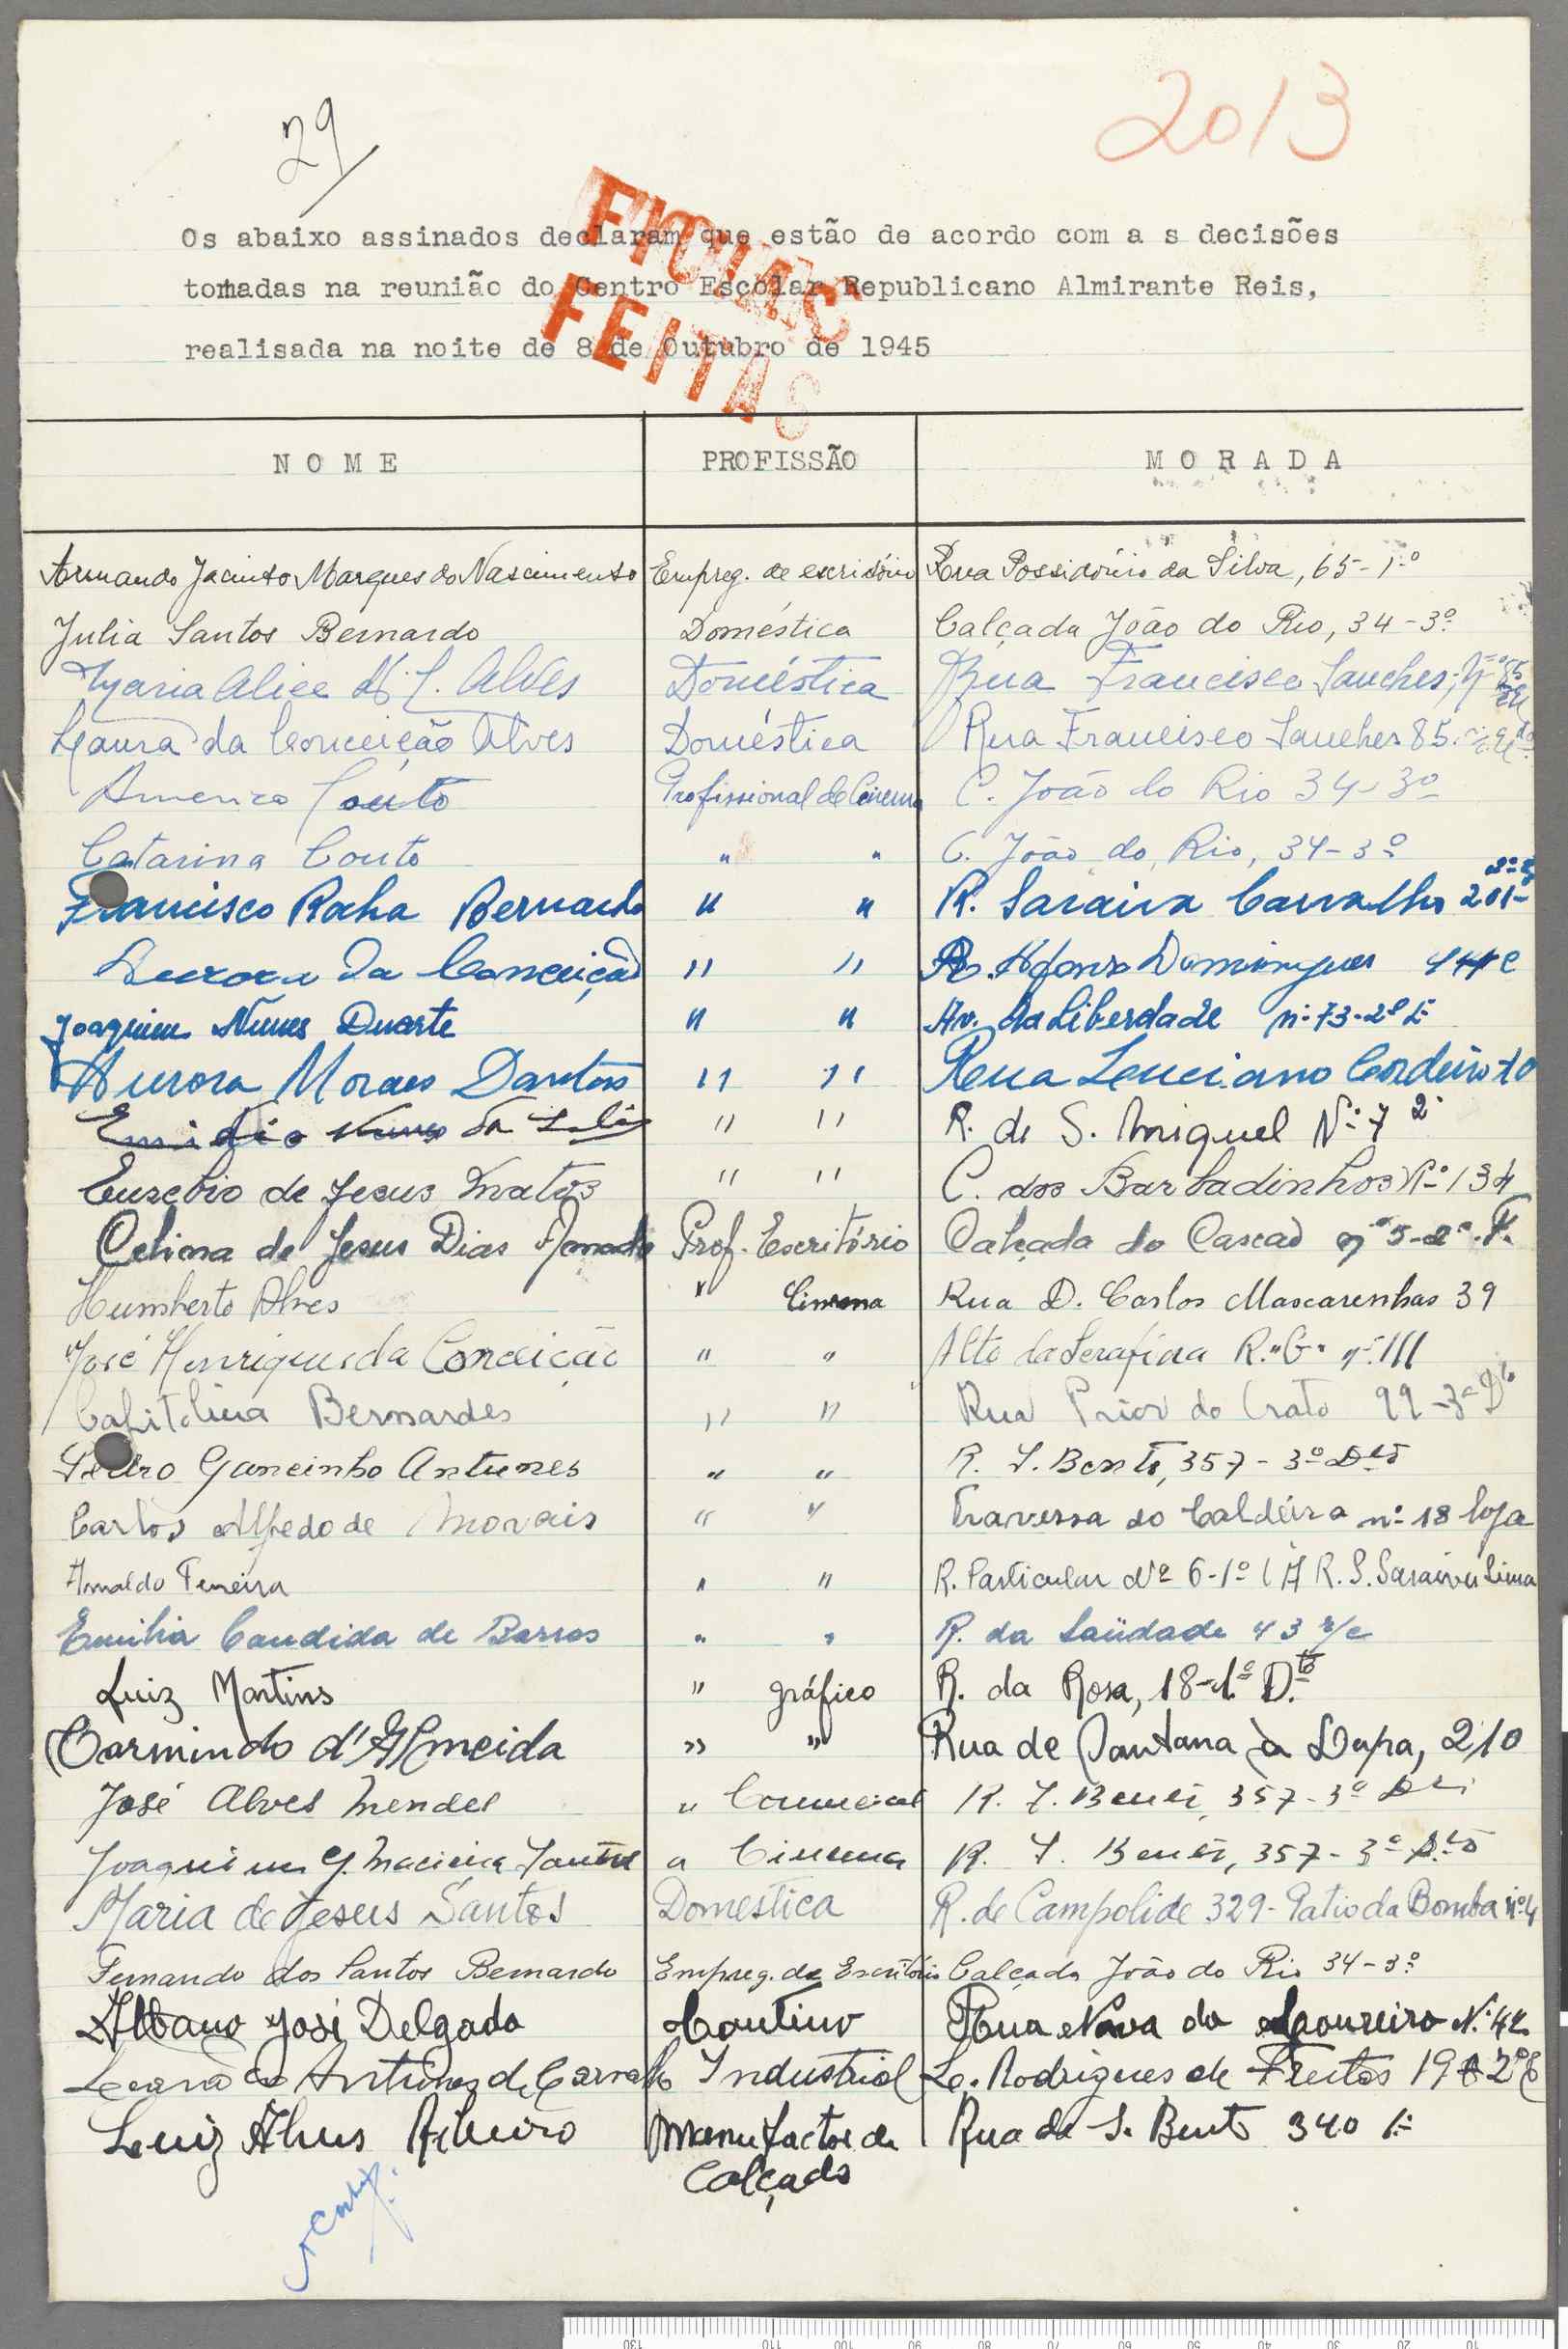 2013
29
FICHAS
FEITAS
Os abaixo assinados declaram que estão de acordo com a s decisões
tomadas na reunião do Centro Escolar Republicano Almirante Reis,
realisada na noite de 8 de Outubro de 1945
N O M E PROFISSÃO M O R A D A
Armando Jacinto Marques do Nascimento Empreg. de escritório Rua Possidónio da Silva, 65-1º
Julia Santos Bernardo Doméstica Calçada João do Rio, 34-3º
Maria Alice Alves Doméstica Rua Francisco Sanches, 85
Laura da Conceição Alves Doméstica Rua Francisco Sanches 85
America Couto Profissional de Cinema C. João do Rio 34-3º
Catarina Couto " " C. João do Rio, 34-3º
Francisco Rocha Bernardo " " R. Saraiva Carvalho 201-
Aurora da Conceição " " R. Afonso Domingues
Joaquim Nunes Duarte " " Av. da Liberdade nº 73-2º E
Aurora Moraes Dantas " " Rua Luciano Cordeiro 10
Emidio Nunes da " " R. de S. Miguel Nº 7 2º
Euzebio de Jesus Matos " " C. dos Barbadinhos Nº 134
Celina de Jesus Dias Prof. Escritório Calçada do Cascão nº 5-2º
Humberto Alves " Cinema Rua D. Carlos Mascarenhas 39
José Henrique da Conceição " " Alto da Serafina R. "G" nº 111
Capitolina Bernardes " " Rua Prior do Crato 99-3º Dto
Pedro Ganeinho Antunes " " R. S. Bento, 357-3º Dto
Carlos Alfredo de Morais " " Travessa do Caldeira nº 18 loja
Arnaldo Ferreira " " R. Particular Nº 6-1º (Á R. S. Saraiva Lima
Emilia Candida de Barros " " R. da Saüdade 43 r/c
Luiz Martins " gráfico R. da Rosa, 18-1º D.to
Carmindo d'Almeida " " Rua de Santana à Lapa, 210
José Alves Mendes " Comercial R. S. Bento, 357-3º Dto
Joaquim G. Macieira Santos " Cinema R. S. Bento, 357-3º Dto
Maria de Jesus Santos Doméstica R. de Campolide 329-Patio da Bomba nº 4
Fernando dos Santos Bernardo Empreg. de Escritório Calçada João do Rio 34-3º
Albano José Delgado Contino Rua Nova do Loureiro Nº 42
Antunes de Carvalho Industrial L. Rodrigues de Freitas 19 2º E
Luiz Alves Ribeiro Manufactor de Rua de S. Bento 340 1º
Calçado
130 110 100 90 80 70 60 50 40 30 20 10